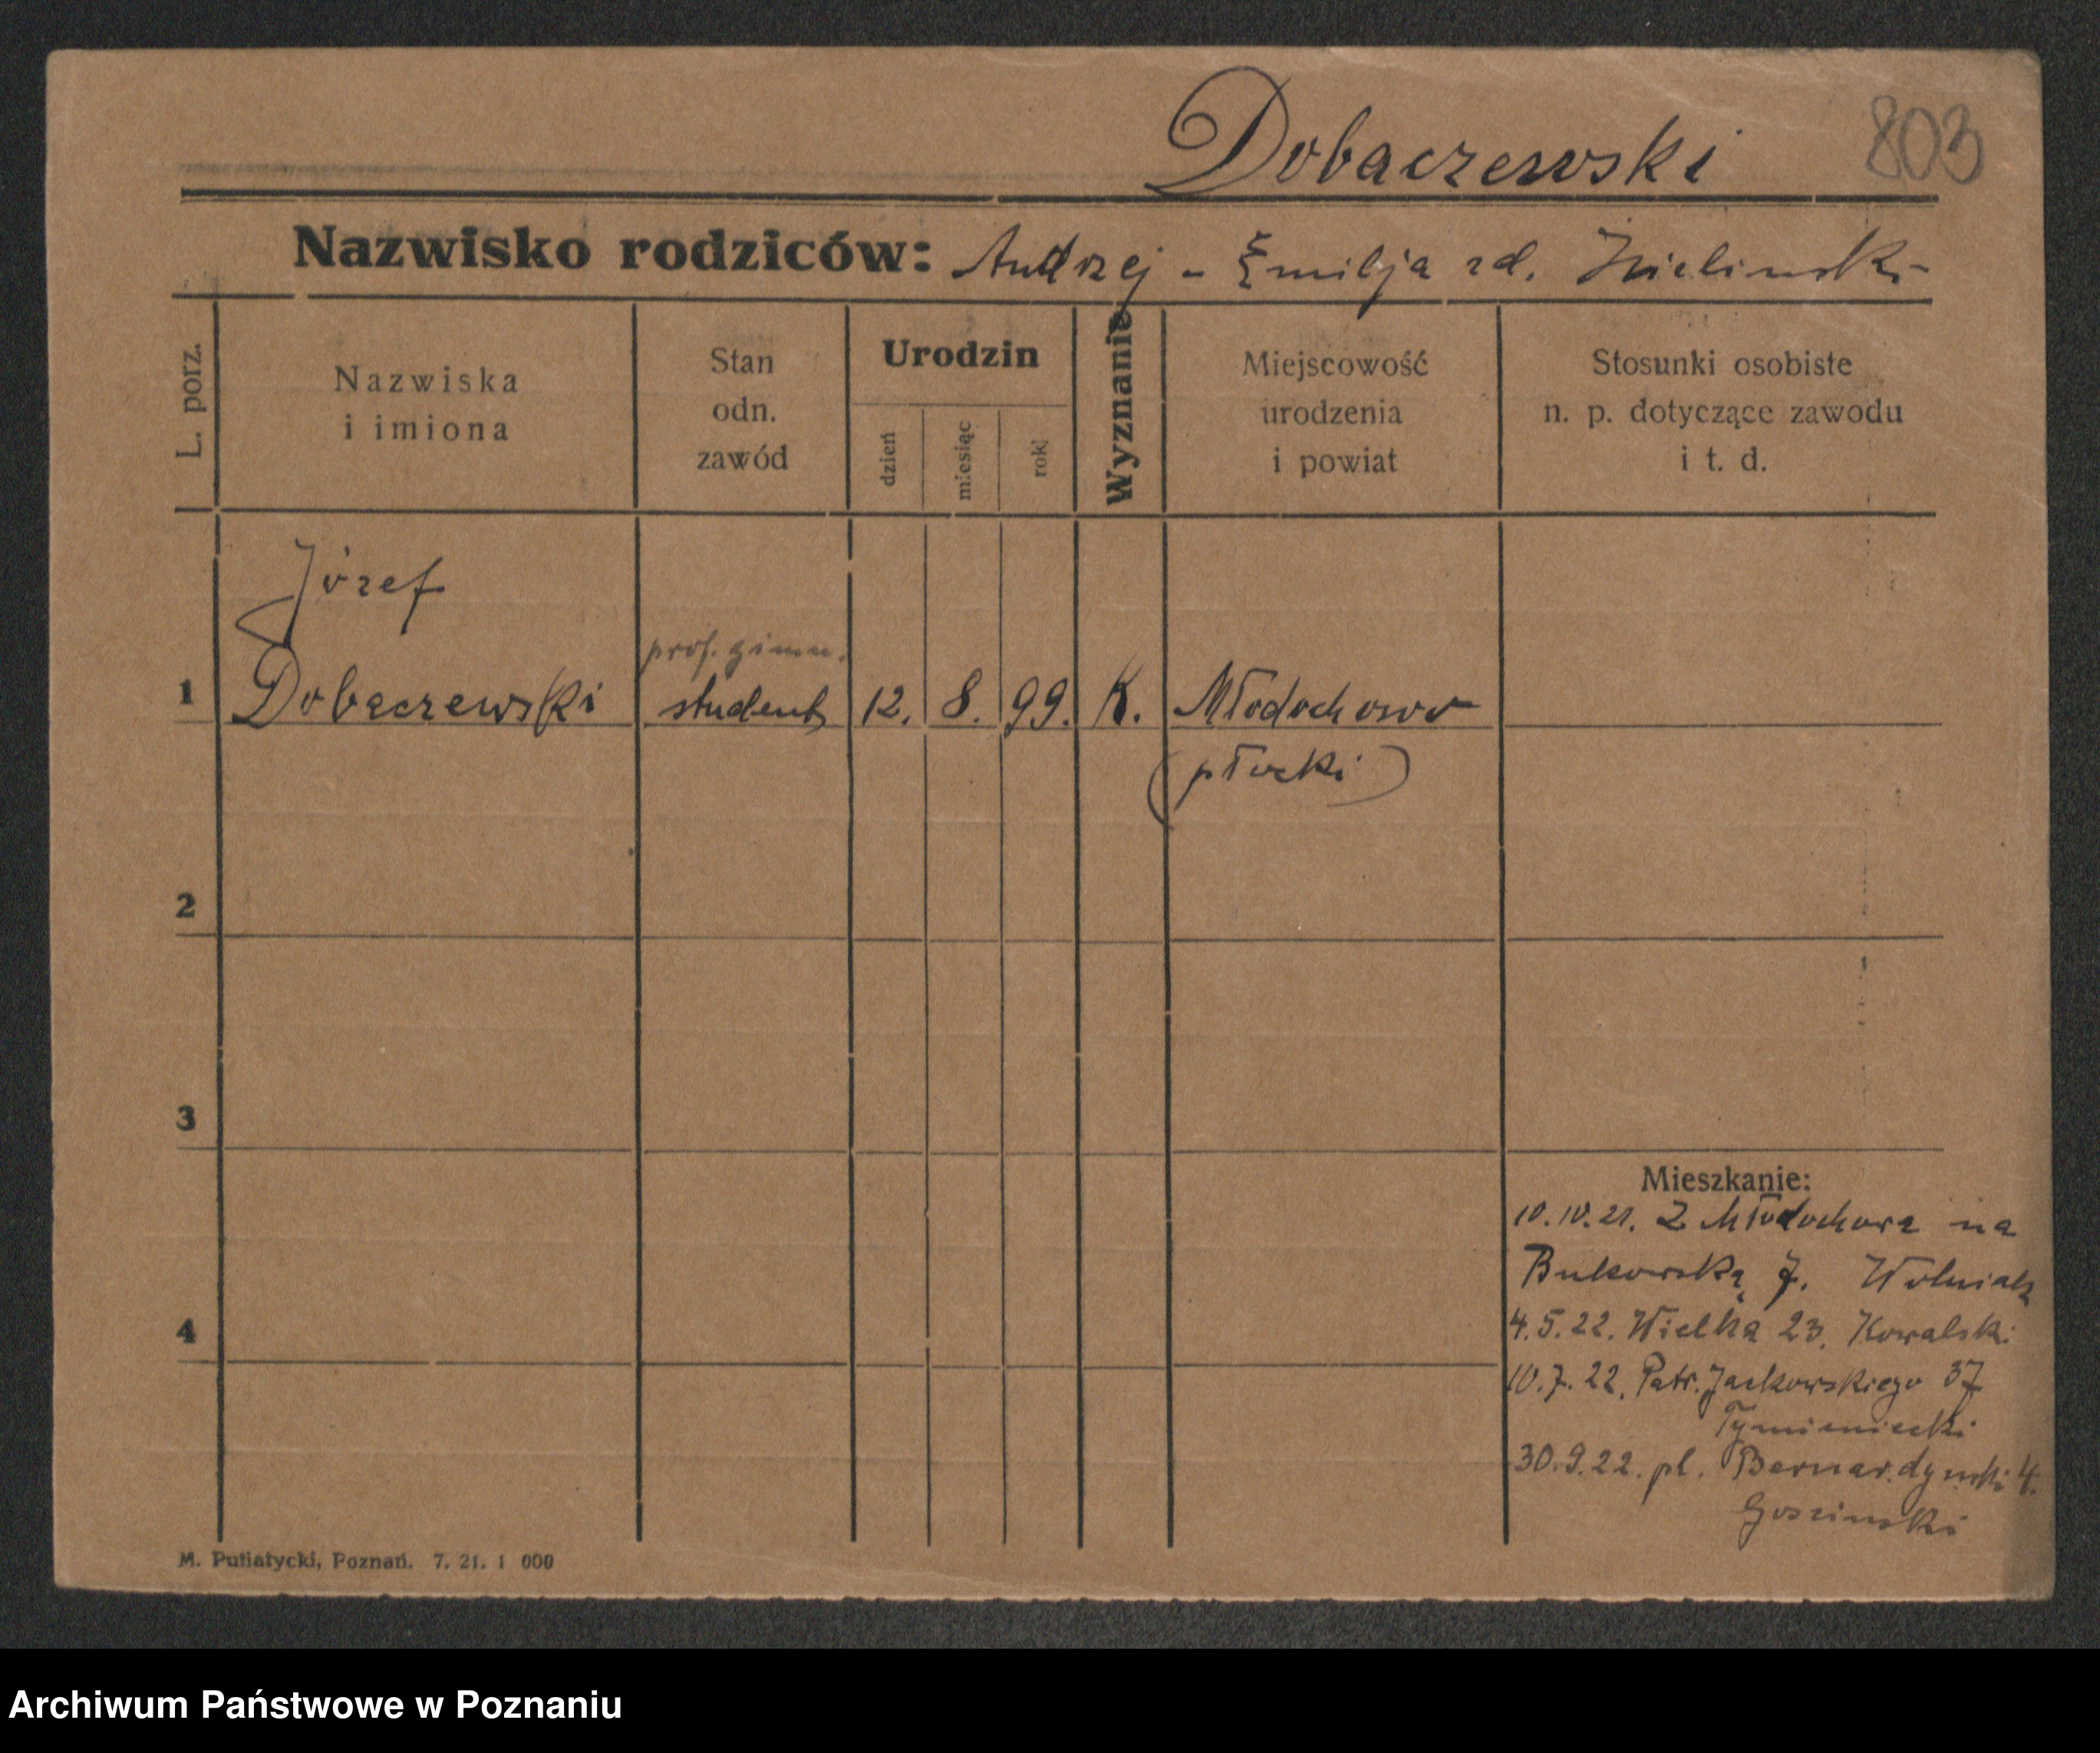 Dobaczewski 803
Nazwisko rodziców: Andrzej - Emilja zd. Zielinski
L. porz.
Nazwiska
i imiona
Stan
odn.
zawód
Urodzin
dzień
miesiąc
rok
Wyznanie
Miejscowość
urodzenia
i powiat
Stosunki osobiste
n. p. dotyczące zawodu
i t. d.
Józef
prof. gimn.
1 Dobaczewski student 12. 8. 99. K. Młodochowo
(płocki)
2
3
4
Mieszkanie:
10.10.21. Z Młodochowa na
Bukowską 7. Wolniak
4.5.22. Wielka 23. Kowalski
10.7.22. Patr. Jackowskiego 37
Tymieniecki
30.9.22. pl. Bernardyński 4.
M. Putiatycki, Poznań. 7. 21. 1 000
Archiwum Państwowe w Poznaniu